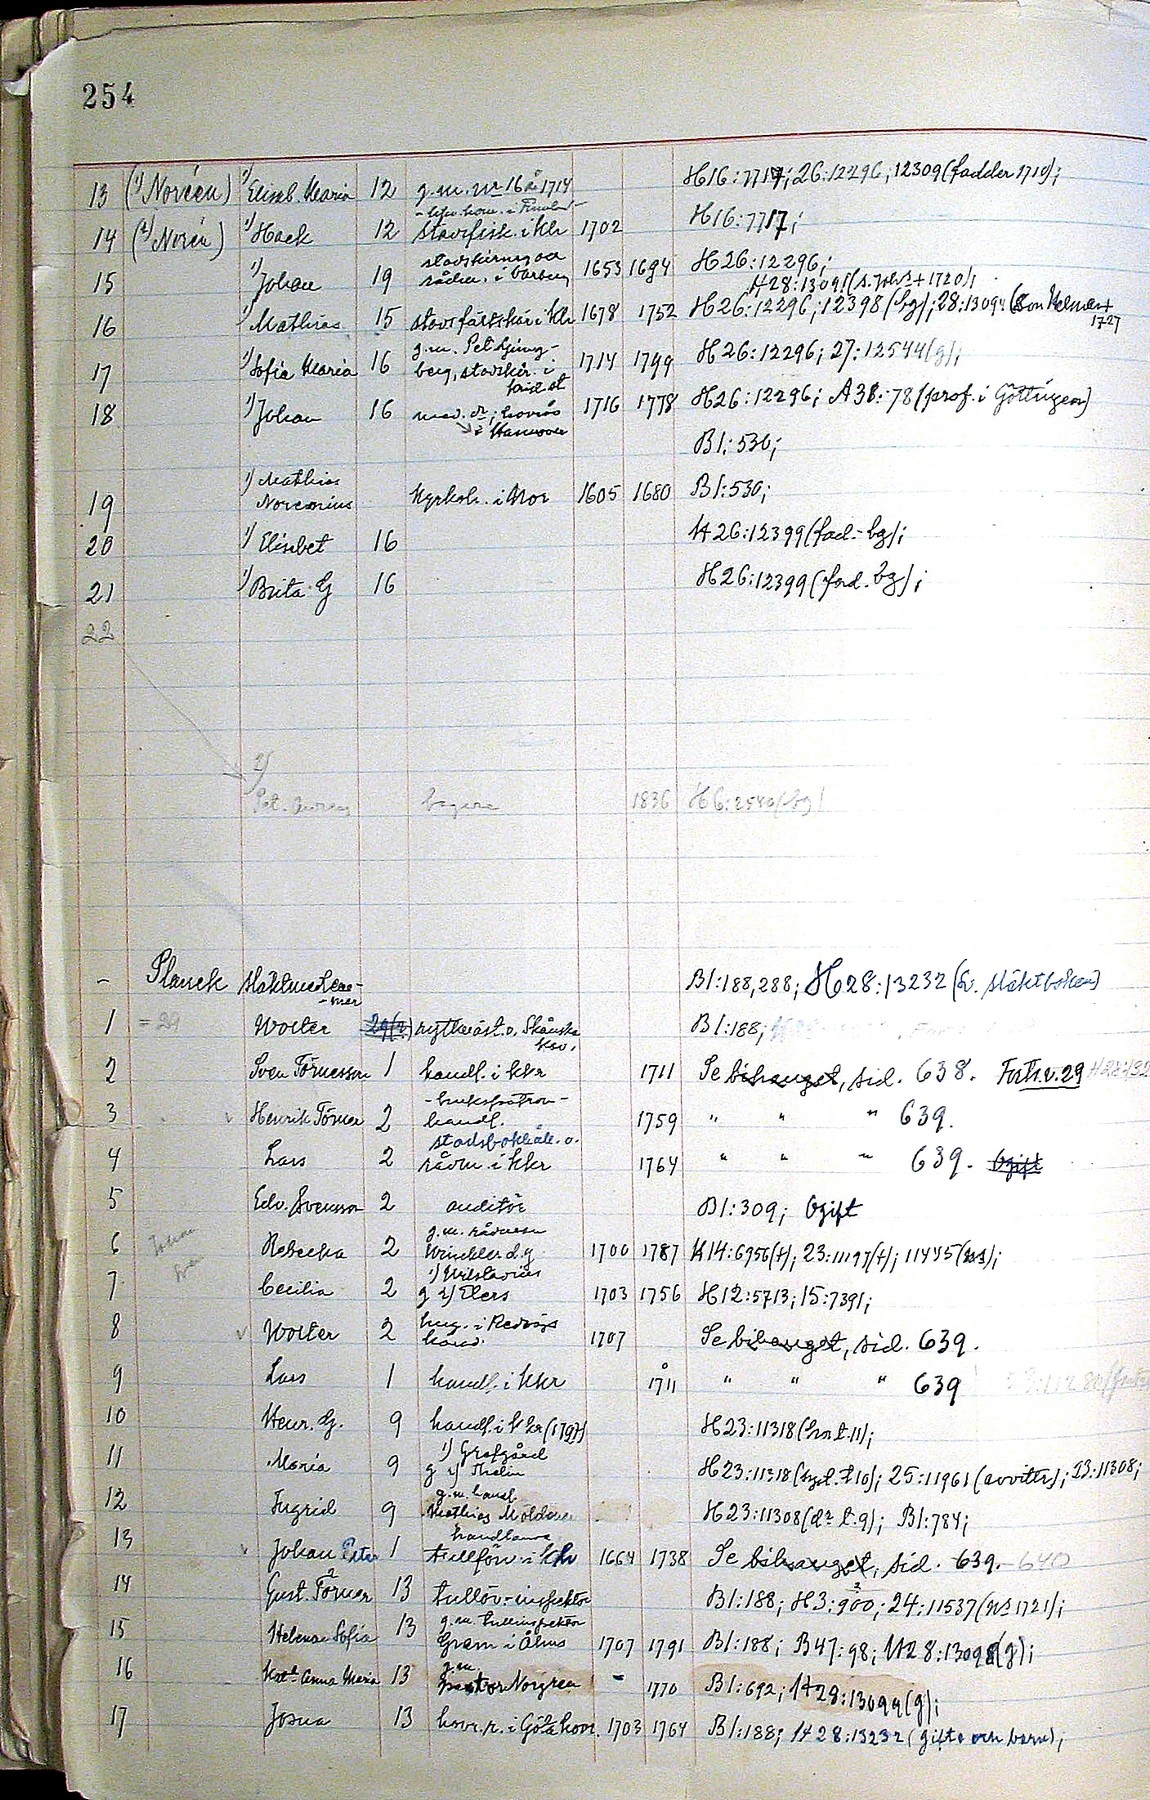 254
13 (1/Noréen) 1/ Elisab. Maria 12 g.m. nr 16 å 1714 H16:7717; 26:12296; 12309 (fadder 1710);
14 (2/Norén) 1/ Hack 12 stadsfisk. i kkr 1702 H16:7717;
15 1/ Johan 19 rådm. i Varberg 1653 1694 H26:12296;
16 1/ Mathias 15 stadsfältskär i kkr 1678 1752 H26:12296; 12398 (bg); 28:13094 (son Helmer +
1727
17 1/ Sofia Maria 16 g.m. Pet. Ljung-
berg, stadskir. i
Krist.st 1714 1799 H26:12296; 27:12544 (g);
18 1/ Johan 16 med. dr; hovråd
i Hannover 1716 1778 H26:12296; A38:78 (prof. i Göttingen)
B1:530;
19 1/ Mathias
Norenius kyrkoh. i Nor 1605 1680 B1:530;
20 1/ Elisabet 16 H26:12399 (fad.- bg);
21 1/ Brita G 16 H26:12399 (fad. bg);
22
2/
Pet. Andreas bagare 1836 H6:2540 (bg)
- Planck släktmedlem-
-mar B1:188,288; H28:13232 (fr. släktboken)
1 = 29 Wolter ryttmäst. v. Skånska
kav. B1:188;
2 Sven Törnesson 1 handl. i kkr 1711 Se bihanget, sid. 638. Forts. v. 29
3 Henrik Törner 2 -brukspatron-
handl. 1759 " " " 639.
4 Lars 2 stadsbokhåll. o.
rådm. i kkr 1764 " " " 639. Ogift
5 Edv. Svensson 2 auditör B1:309; Ogift
6 Rebecka 2 g.m. rådman
Winckler d.y 1700 1787 H14:6956 (t); 23:11197 (t); 11475
7 Cecilia 2 g 2/ Elers 1703 1756 H12:5713; 15:7391;
8 Wolter 2 Redvägs
härad. 1707 Se bihanget, sid. 639.
9 Lars 1 handl. i kkr å
1711 " " " 639
10 Henr. G. 9 handl. i kkr (1797) H23:11318 (bro t. 11);
11 Maria 9 1/ Grafgård
g 2/ Thelin H23:11318 (syst. t 10); 25:11961 (avvittr); 23:11308;
12 Ingrid 9 g.m. handl
Mathias H23:11308 (dr t. 9); B1:784;
13 Johan Peter 1 handlande
tullförv. i kkr 1664 1738 Se bihanget, sid. 639. - 640
14 Gust. Törner 13 tullöv.-inspektor B1:188; H3:900; 24:11537 (ns 1721);
15 Helena Sofia 13 g.m. tullinspektor
Gram i Åhus 1707 1791 B1:188; B47:98; H28:13098 (g);
16 Anna Maria 13 g.m.
pastor Norgren - 1770 B1:692; H28:13099 (g);
17 Josua 13 hovr.r. i Göta hovr. 1703 1764 B1:188; H28:13232 (gifte och barn);